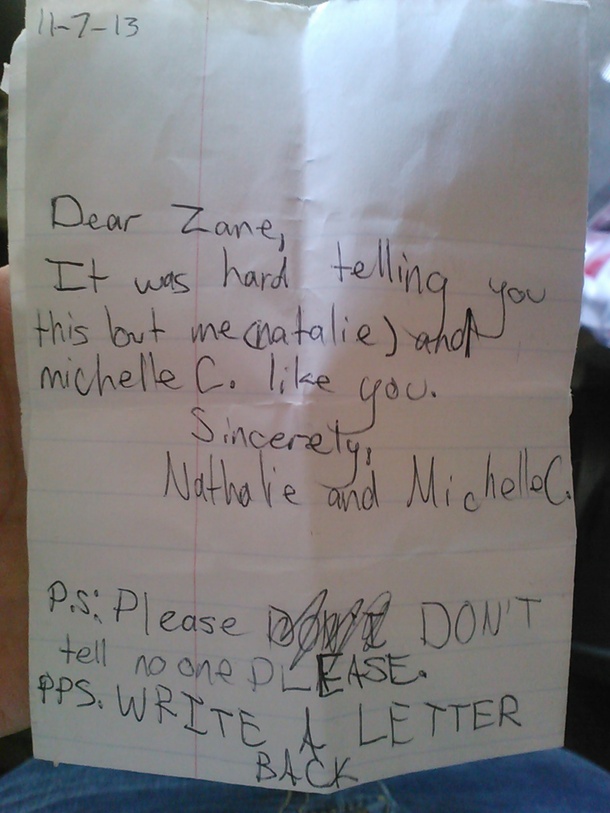 11-7-13
Dear Zane,
It was hard telling you
this but me(natalie) and
michelle C. like you.
Sincerety,
Nathalie and Michelle C.
P.S: Please DON'T
tell no one PLEASE.
PPS. WRITE A LETTER
BACK